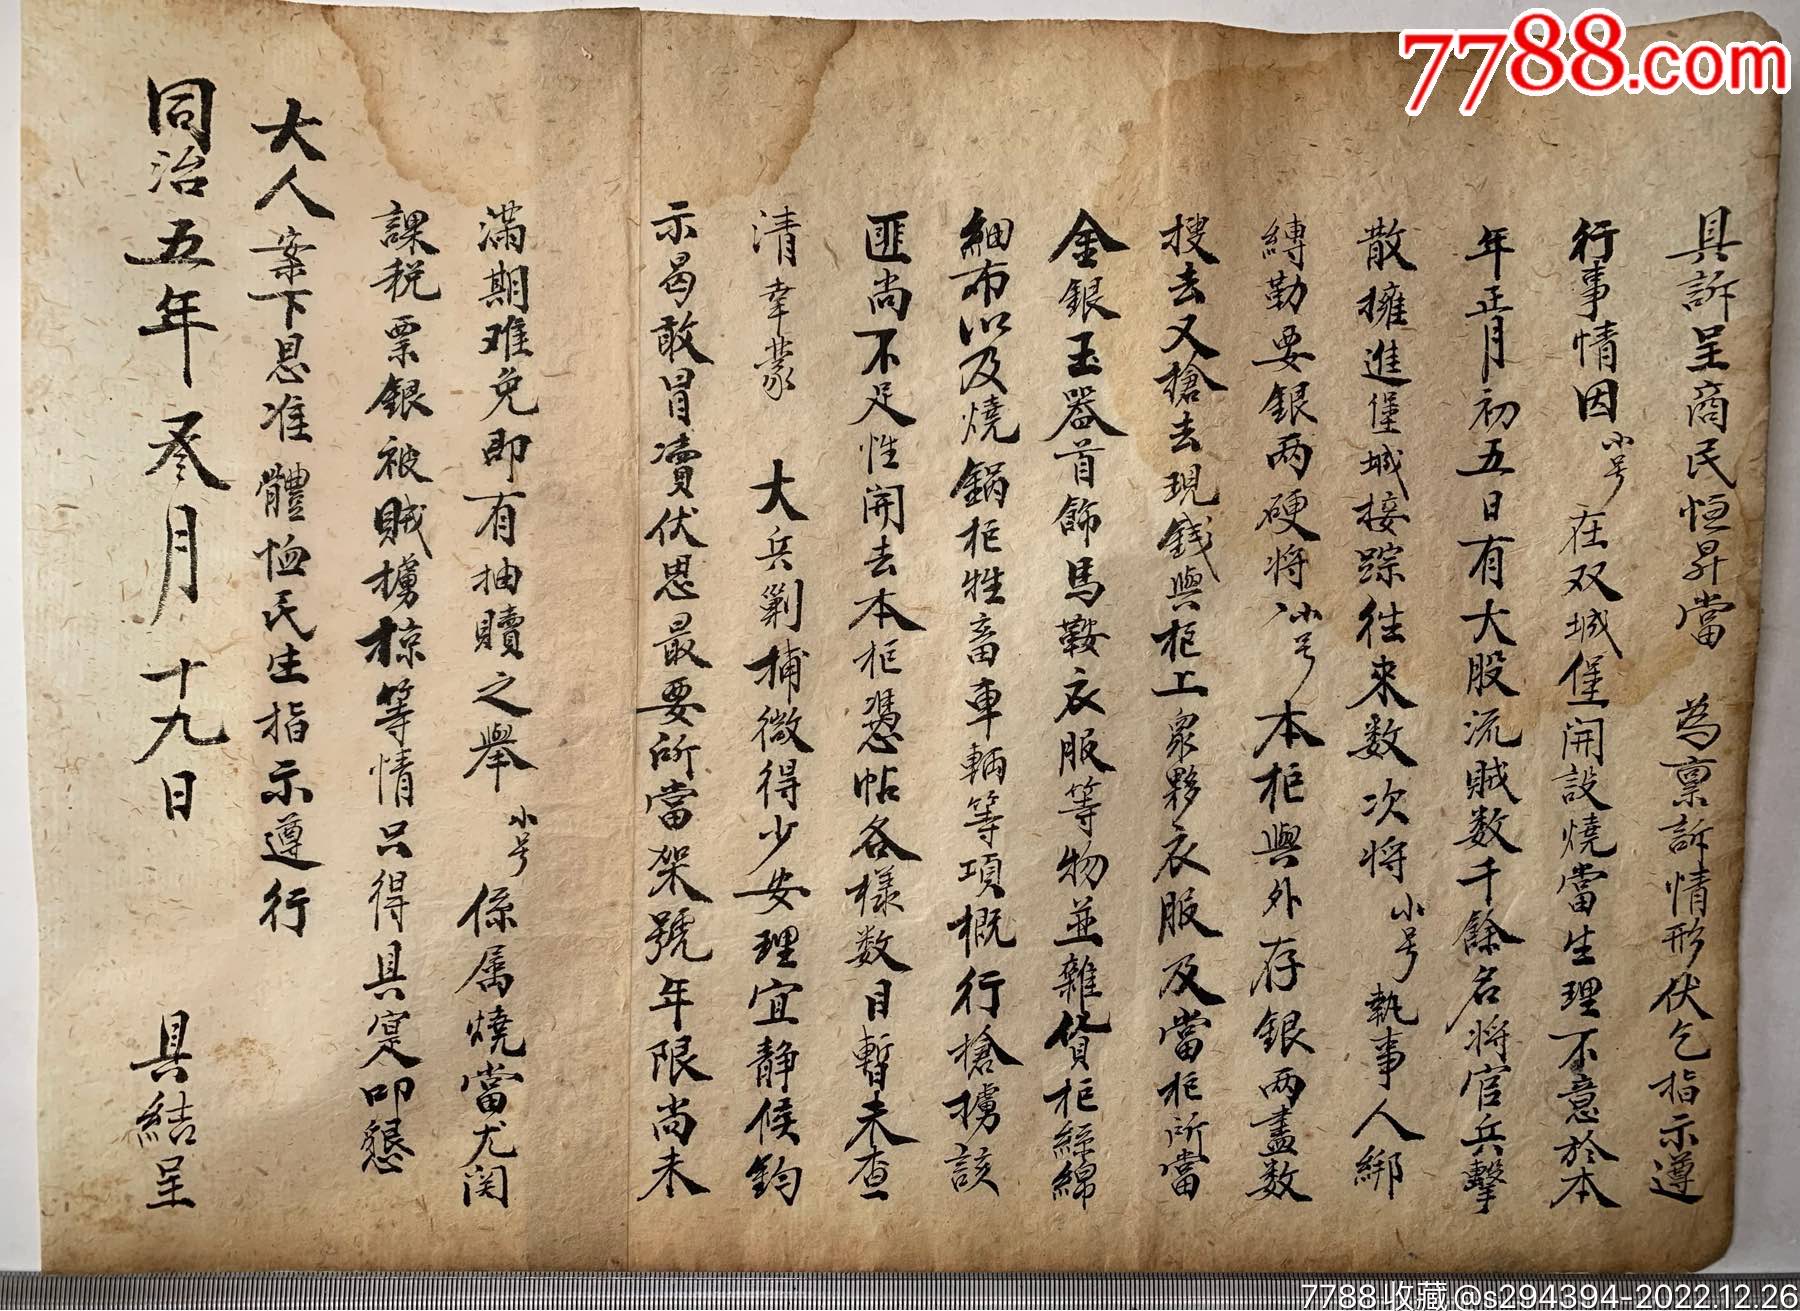 7788.com
具訴呈商民恒昇當 為稟訴情形伏乞指示遵
行事情因小号在双城堡開設燒當生理不意於本
年正月初五日有大股流賊数千餘名将官兵擊
散擁進堡城接踪往来数次将小号執事人綁
縛勒要銀两硬将小号本柜與外存銀两盡数
搜去又搶去現錢與柜上衆夥衣服及當柜所當
金銀玉器首飾馬鞍衣服等物並雜貨柜絲綿
細布以及燒鍋柜牲畜車輛等項概行搶擄該
匪尚不足性開去本柜憑帖各樣数目暫未查
清幸蒙 大兵剿捕微得少安理宜静候鈞
示曷敢冒凟伏思最要所當架號年限尚未
滿期难免即有抽贖之舉小号係属燒當尤関
課税票銀被賊擄掠等情只得具寔叩懇
大人案下恩准體恤民生指示遵行
同治五年叁月十九日 具結呈
7788收藏@s294394-2022.12.26